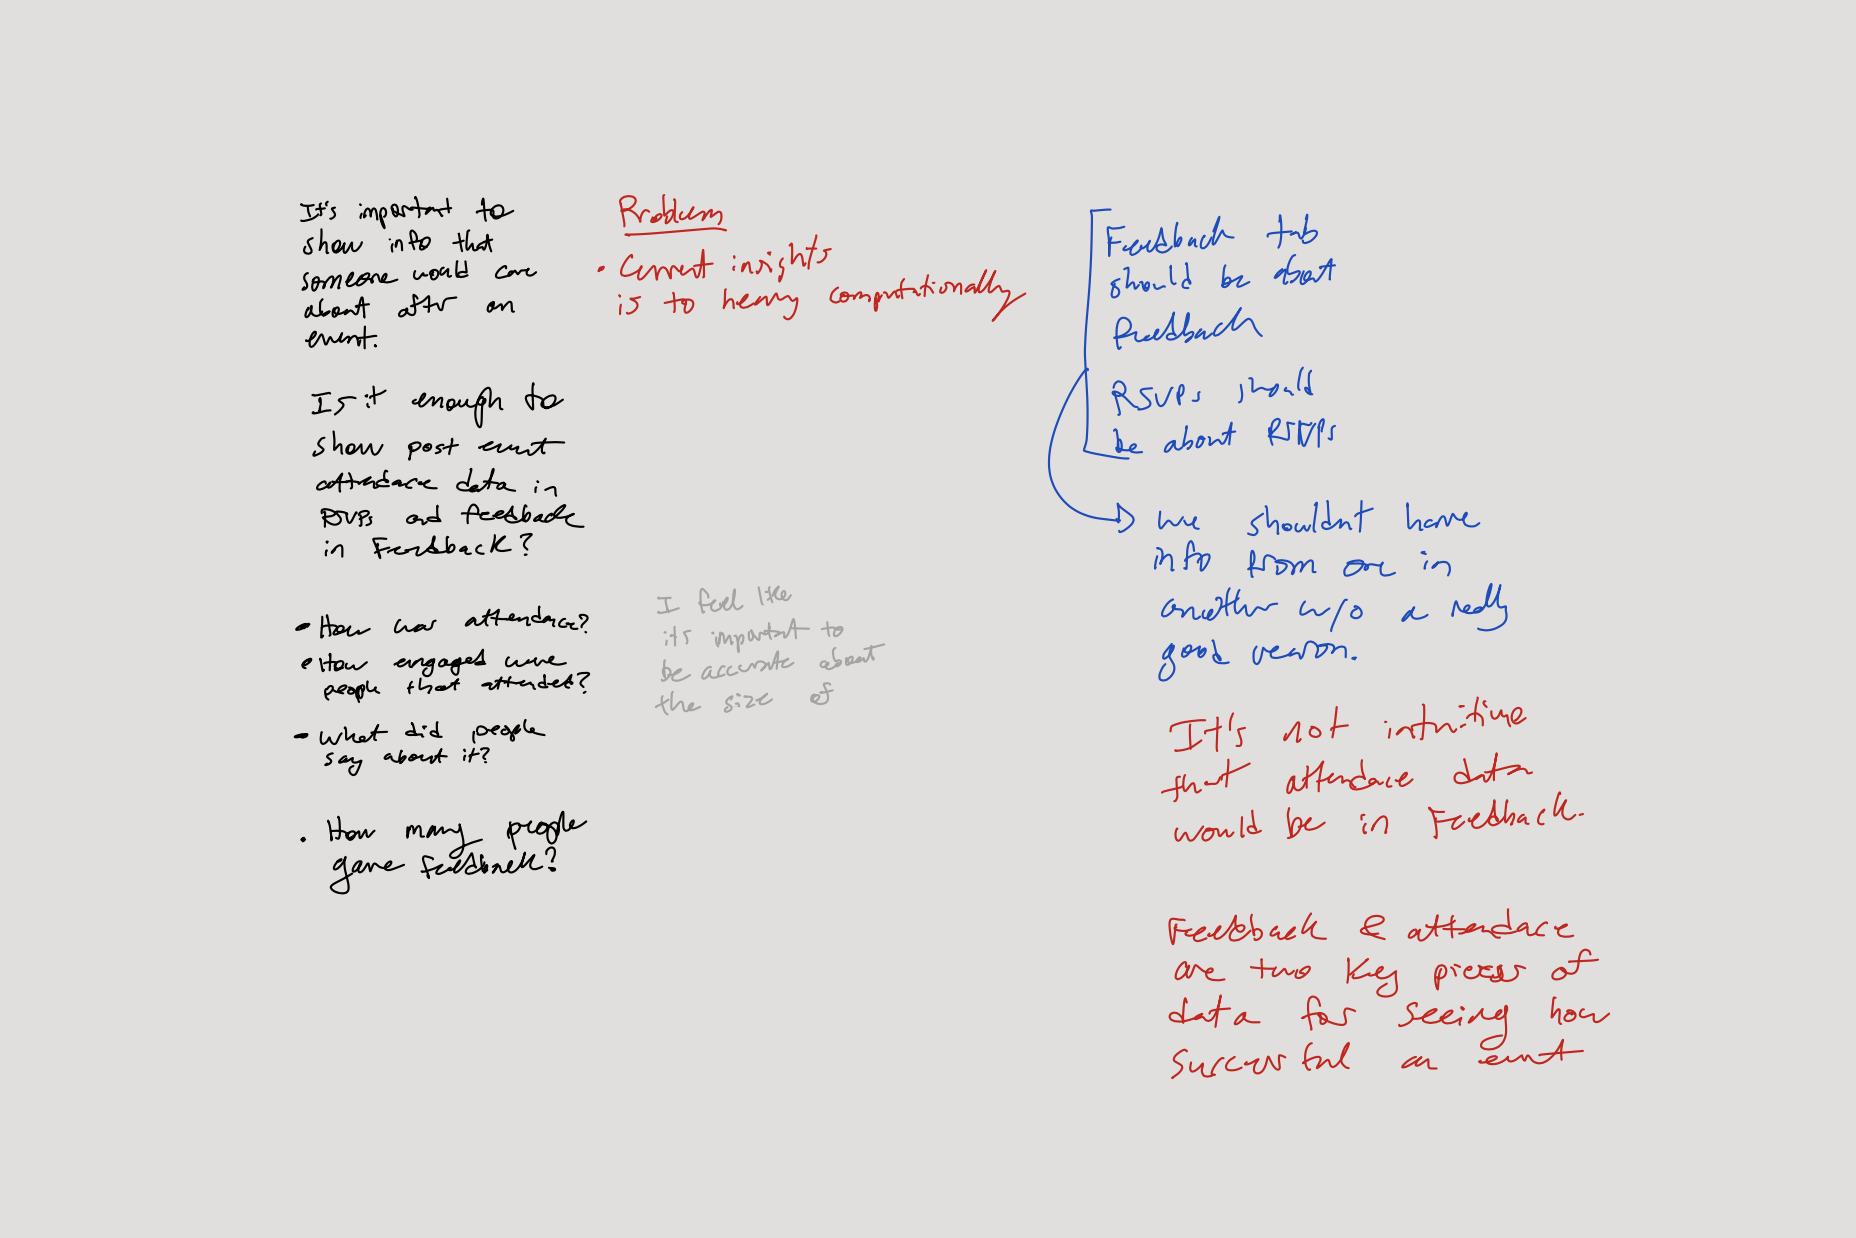 It's important to
show info that
someone would care
about aftr an
event.
Is it enough to
show post event
attendace data in
RSVPs and feedback
in Feedback?
How was attendance?
How engaged were
people that attended?
What did people
say about it?
How many people
gave feedback?
Problem
Current insights
is to heavy computationally
I feel like
its important to
be accurate about
the size of
Feedback tab
should be about
feedback
RSVPs should
be about RSVPs
we shouldnt have
info from one in
another w/o a really
good reason.
It's not intuitive
that attendace data
would be in Feedback.
Feedback & attendace
are two key pieces of
data for seeing how
successful an event